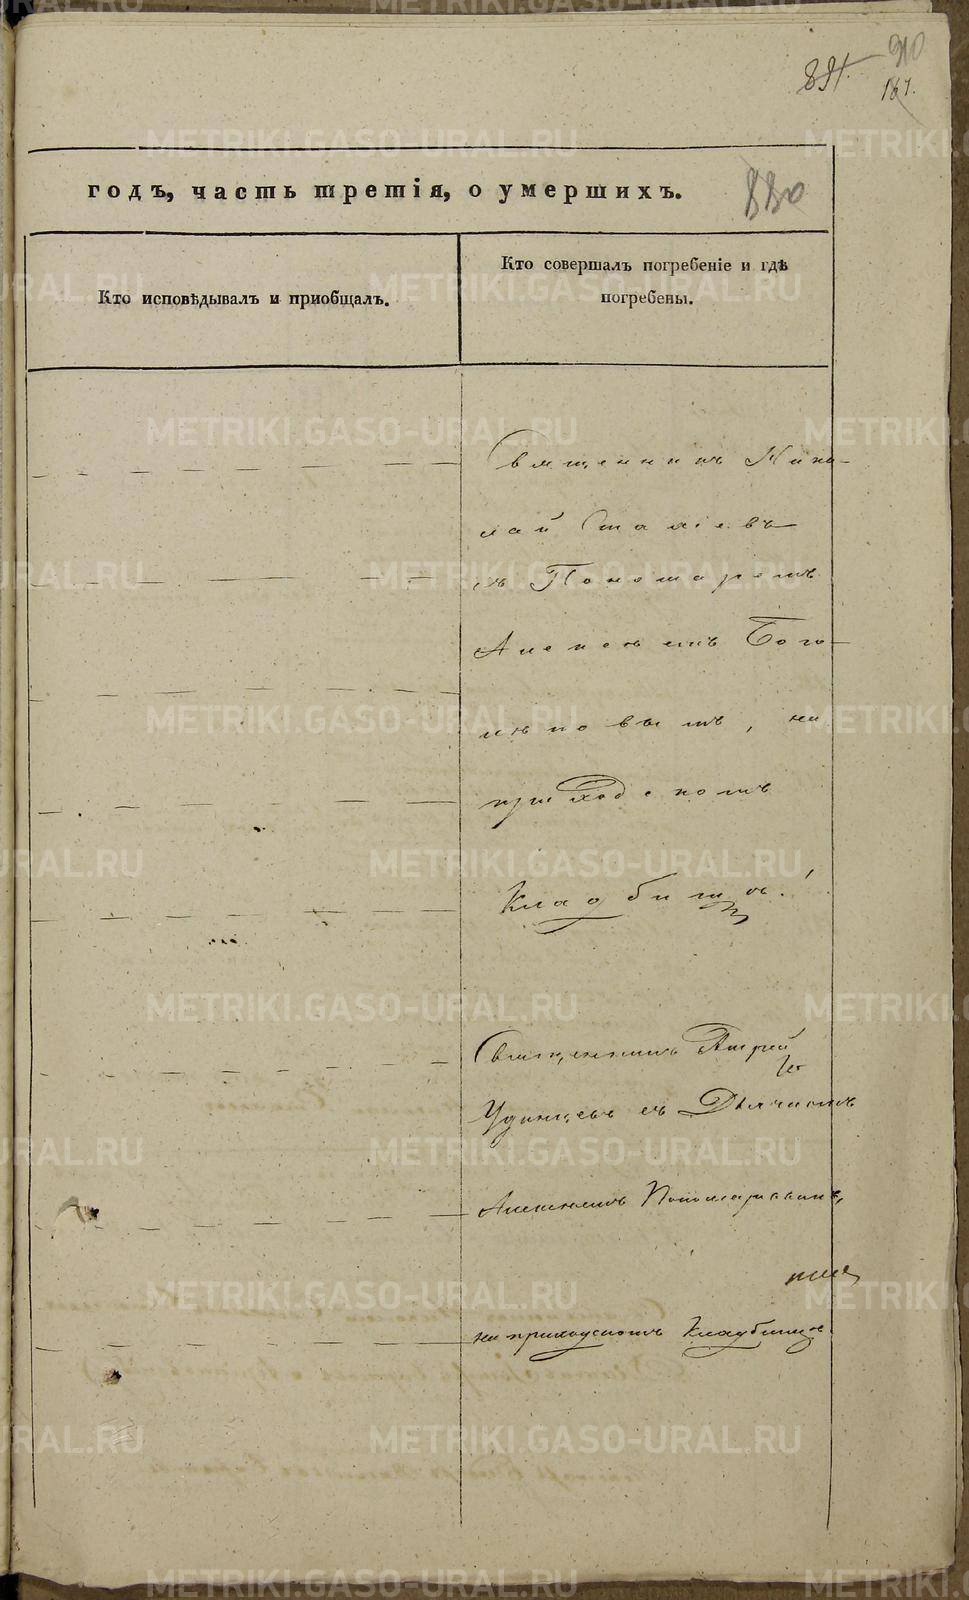 891. 910
161.
годъ, часть третія, о умершихъ. 880
Кто исповѣдывалъ и приобщалъ.
Кто совершалъ погребеніе и гдѣ
погребены.
Священникъ Нико-
лай
съ Пономаремъ
Алексѣемъ Бого-
лѣповымъ, на
приходскомъ
Кладбищѣ.
Священникъ Андрей
Удинцевъ съ Дьячкомъ
Алексѣемъ Пономаревымъ,
на приходскомъ Кладбищѣ.
METRIKI.GASO-URAL.RU